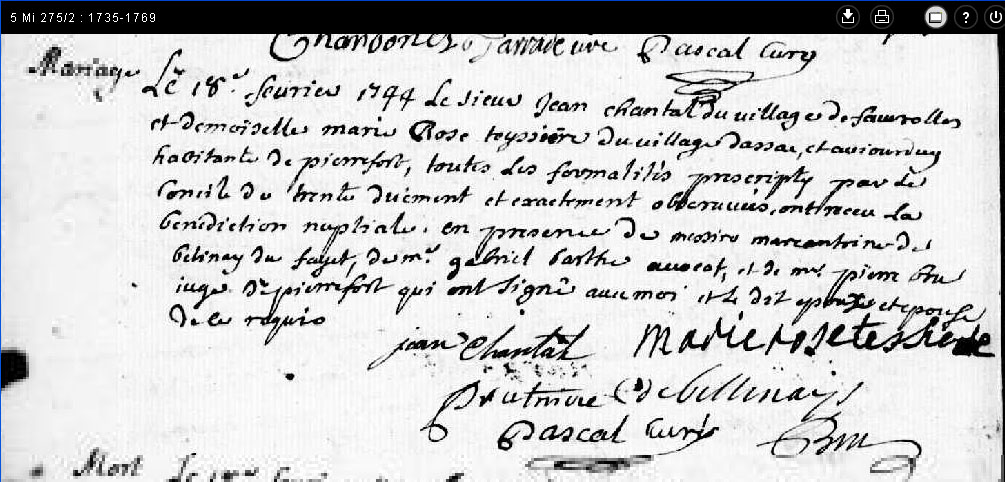 5 Mi 275/2 : 1735-1769
Pascal Curé
Mariage
Le 18e. fevrier 1744 Le sieur Jean chantal du village de faverolles
et demoiselle marie Rose teyssedre du village dassac, et aujourduy
habitante de pierrefort, toutes Les formalités prescriptes par Le
Concile de trente duement et exactement observuées, ont receu La
benediction nuptiale. en presence de messire marcantoine de
belinay du fayet, de mr. gabriel barthe avocat, et de mr. pierre bru
iuge de pierrefort qui ont signé avec moi et le dit epoux et epouse
de ce requis
jean Chantal
Marie rose tessiedre
De bellinays
Pascal Curé
Bru
Mort